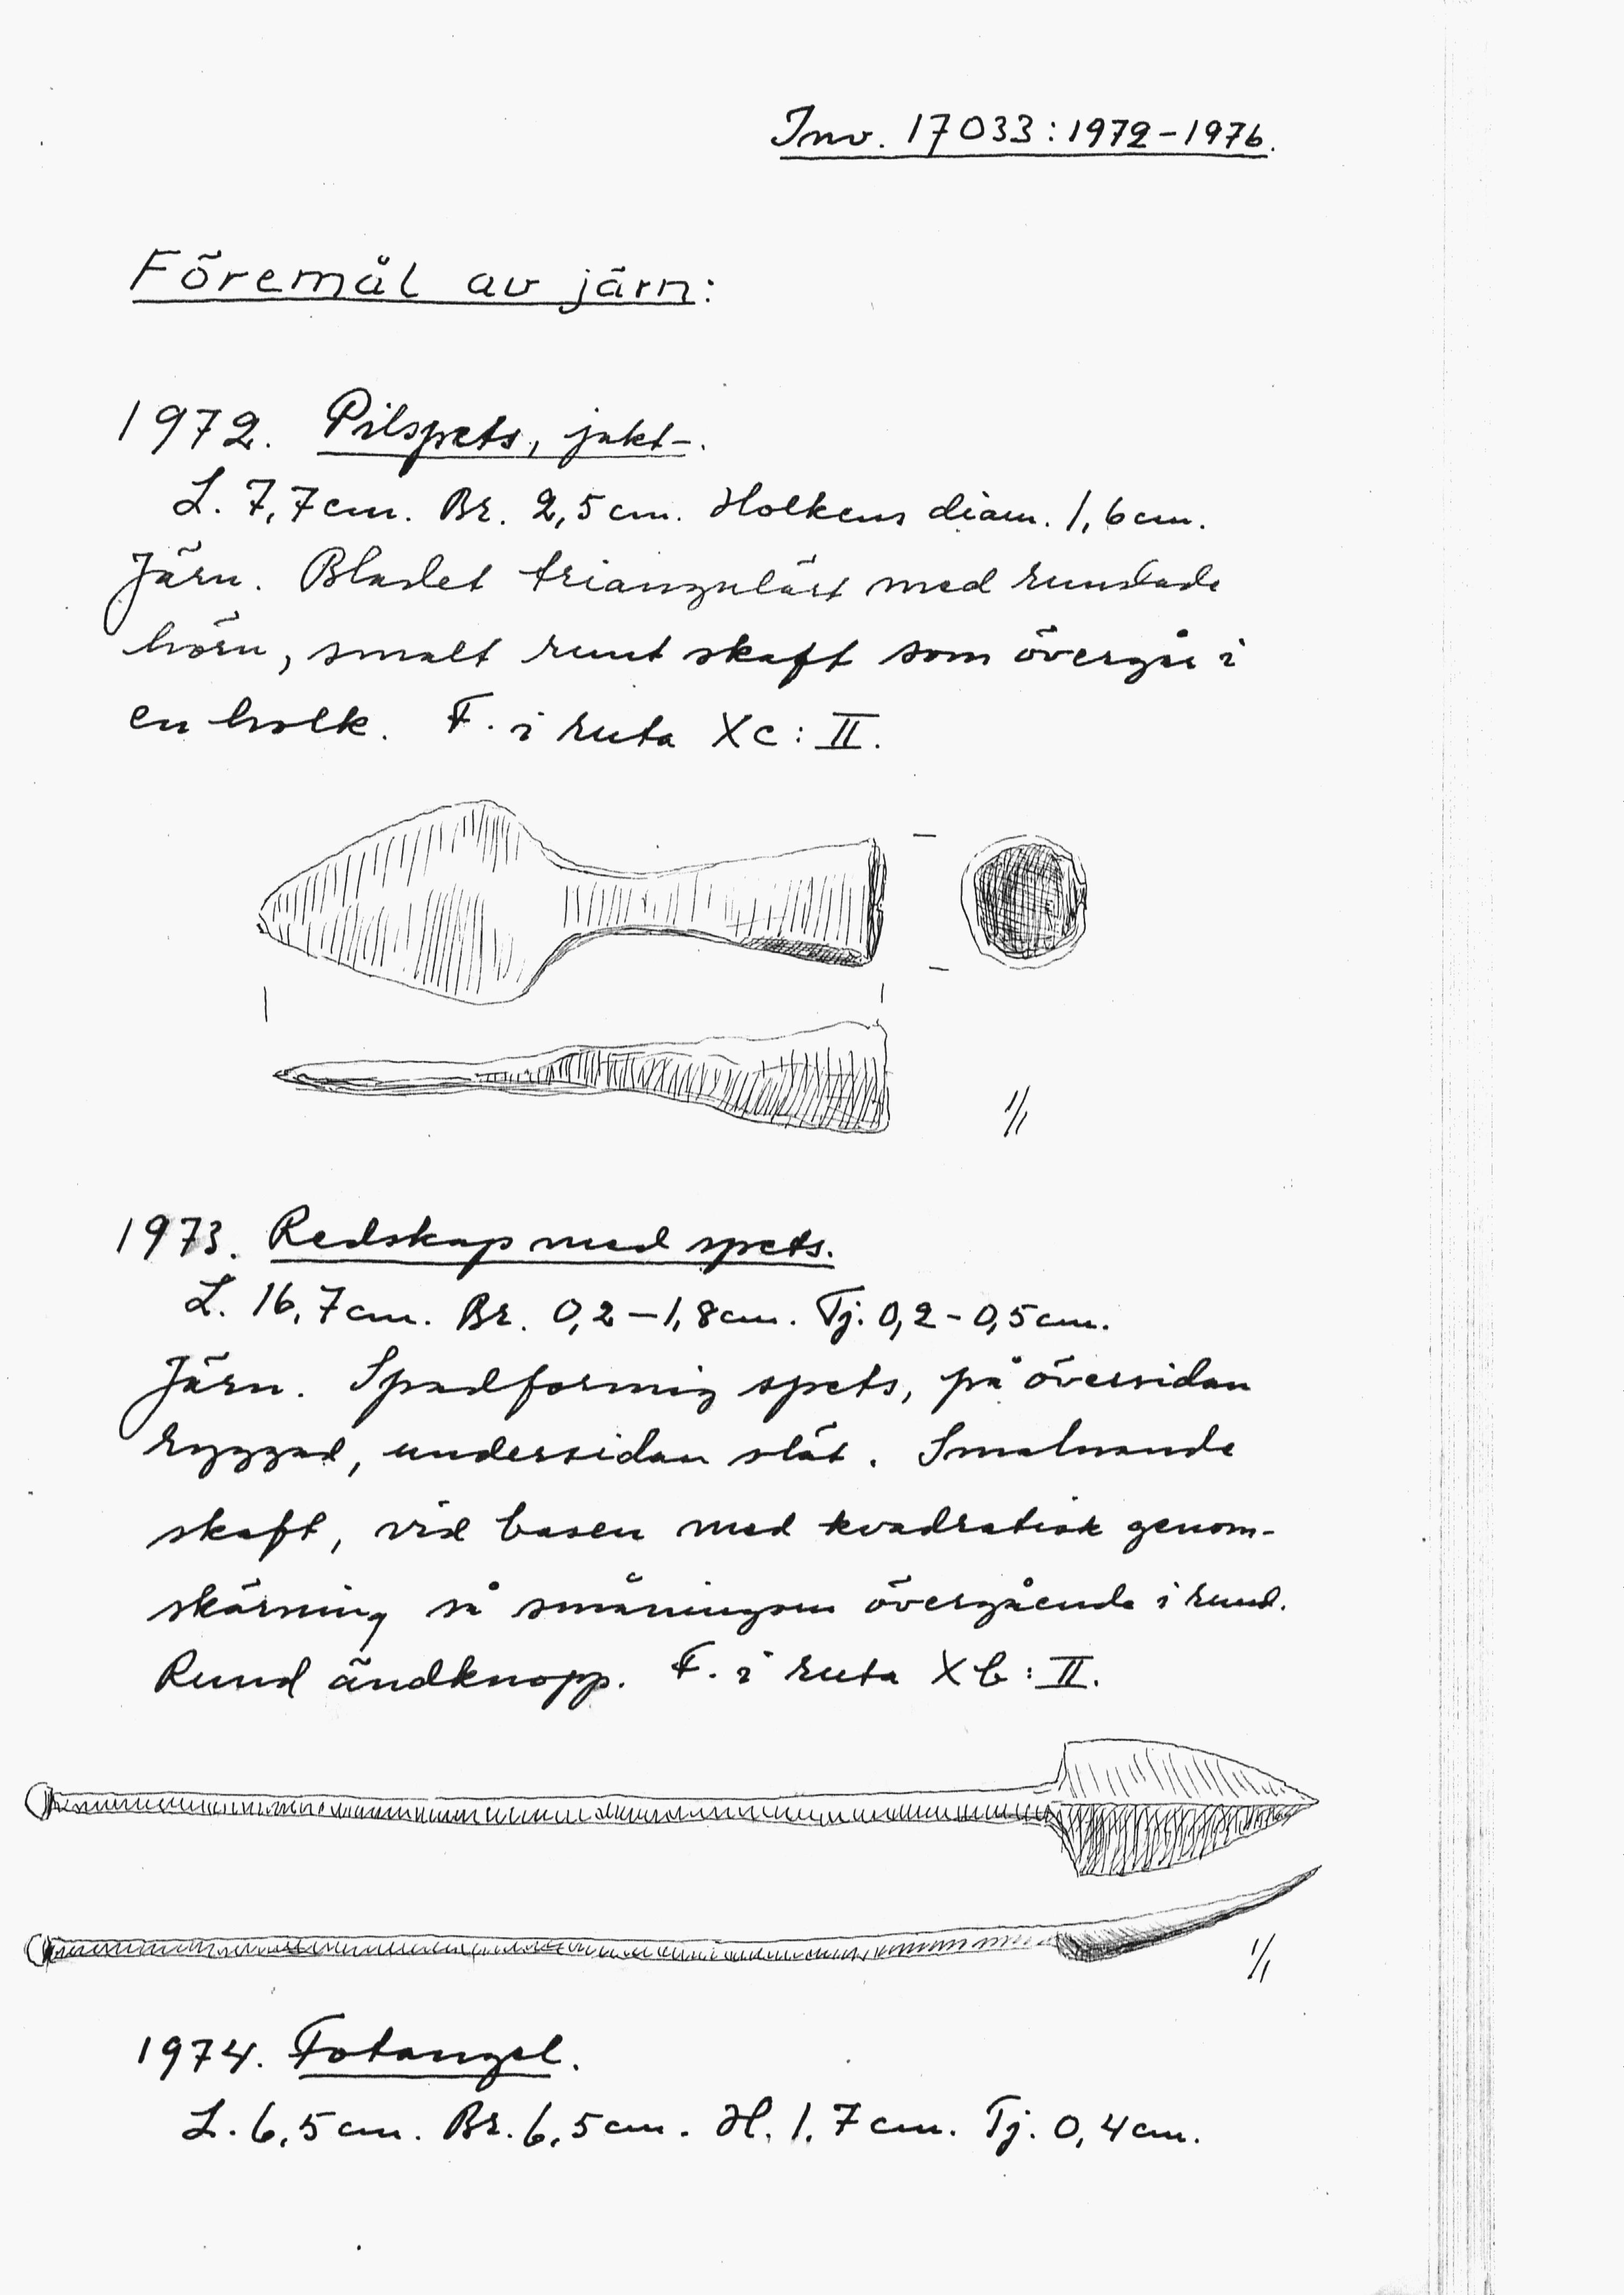 Inv. 17033:1972-1976.
Föremål av järn:
1972. Pilspets, jakt-.
L. 7,7cm. Br. 2,5cm. Holkens diam. 1,6cm.
Järn. Bladet triangulärt med rundade
hörn, smalt runt skaft som övergår i
en holk. F. i ruta Xc: II.
1/1
1973. Redskap med spets.
L. 16,7cm. Br. 0,2-1,8cm. Tj. 0,2-0,5cm.
Järn. Spadformig spets, på översidan
ryggad, undersidan slät. Smalnande
skaft, vid basen med kvadratisk genom-
skärning så småningom övergående i rund.
Rund ändknopp. F. i ruta Xb: II.
1/1
1974. Fotangel.
L. 6,5cm. Br. 6,5cm. H. 1,7cm. Tj. 0,4cm.